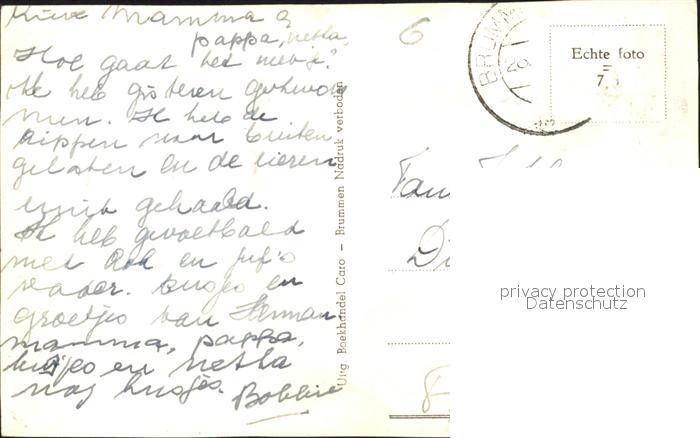 Lieve Mamma &
pappa, netta,
Hoe gaat het met je?
Ik heb gisteren gezwom
men. Ik heb de
kippen naar buiten
gelaten en de eieren
eruit gehaald.
Ik heb gevoetbald
met Rob en juf's
vader. Kusjes en
groetjes van Herman.
mamma, pappa,
kusjes en netta
nog kusjes. Bobbie
Uitg. Boekhandel Caro – Brummen Nadruk verboden
6
BRUMM
Echte foto
7
Fam
privacy protection
Datenschutz